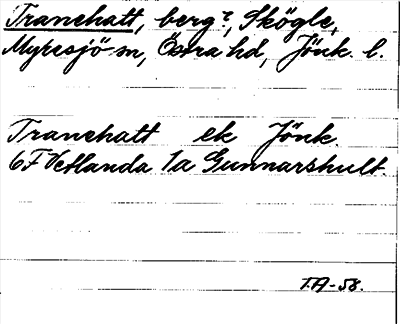 Tranehatt, berg?, Skögle,
Myresjö sn, Östra hd, Jönk. l.
Tranehatt ek Jönk.
6F Vetlanda 1a Gunnarshult.
T.A-58.